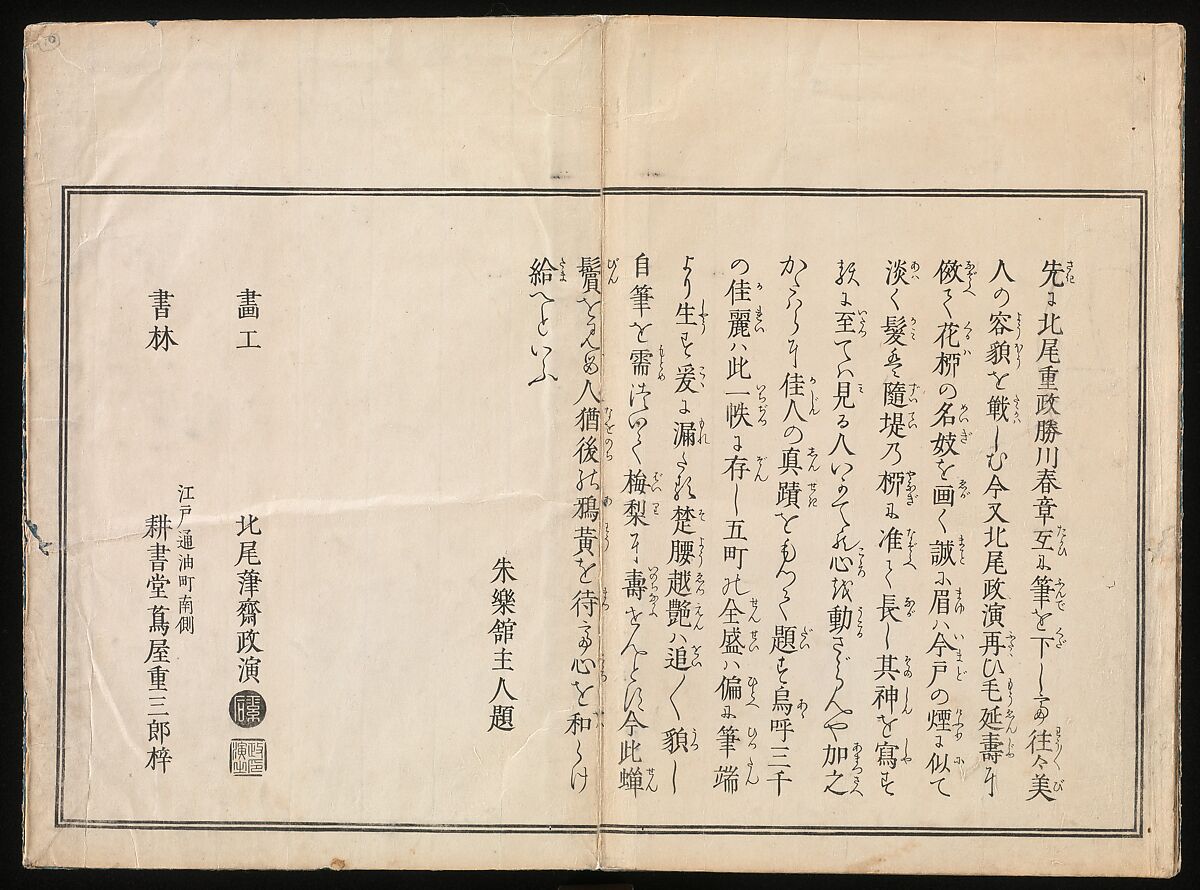 先に北尾重政勝川春章互に筆を下して往々美
人の容貌を戦しむ今又北尾政演再ひ毛延壽に
倣て花栁の名妓を画く誠に眉は今戸の煙に似て
淡く髪は隨堤乃栁に准て長し其神を寫す
に至ては見る人いかてか心を動さゝらんや加之
かたはらに佳人の真蹟をもつて題す烏呼三千
の佳麗は此一帙に存し五町の全盛は偏に筆端
より生す爰に漏たる楚腰越艶は追〱貌し
自筆を需次いて梅梨に壽せんとす今此蝉
鬢を見る人猶後の鴉黄を待て心を和らけ
給へといふ
朱樂舘主人題
畵工 北尾葏齋政演
書林 江戸通油町南側
耕書堂蔦屋重三郎梓